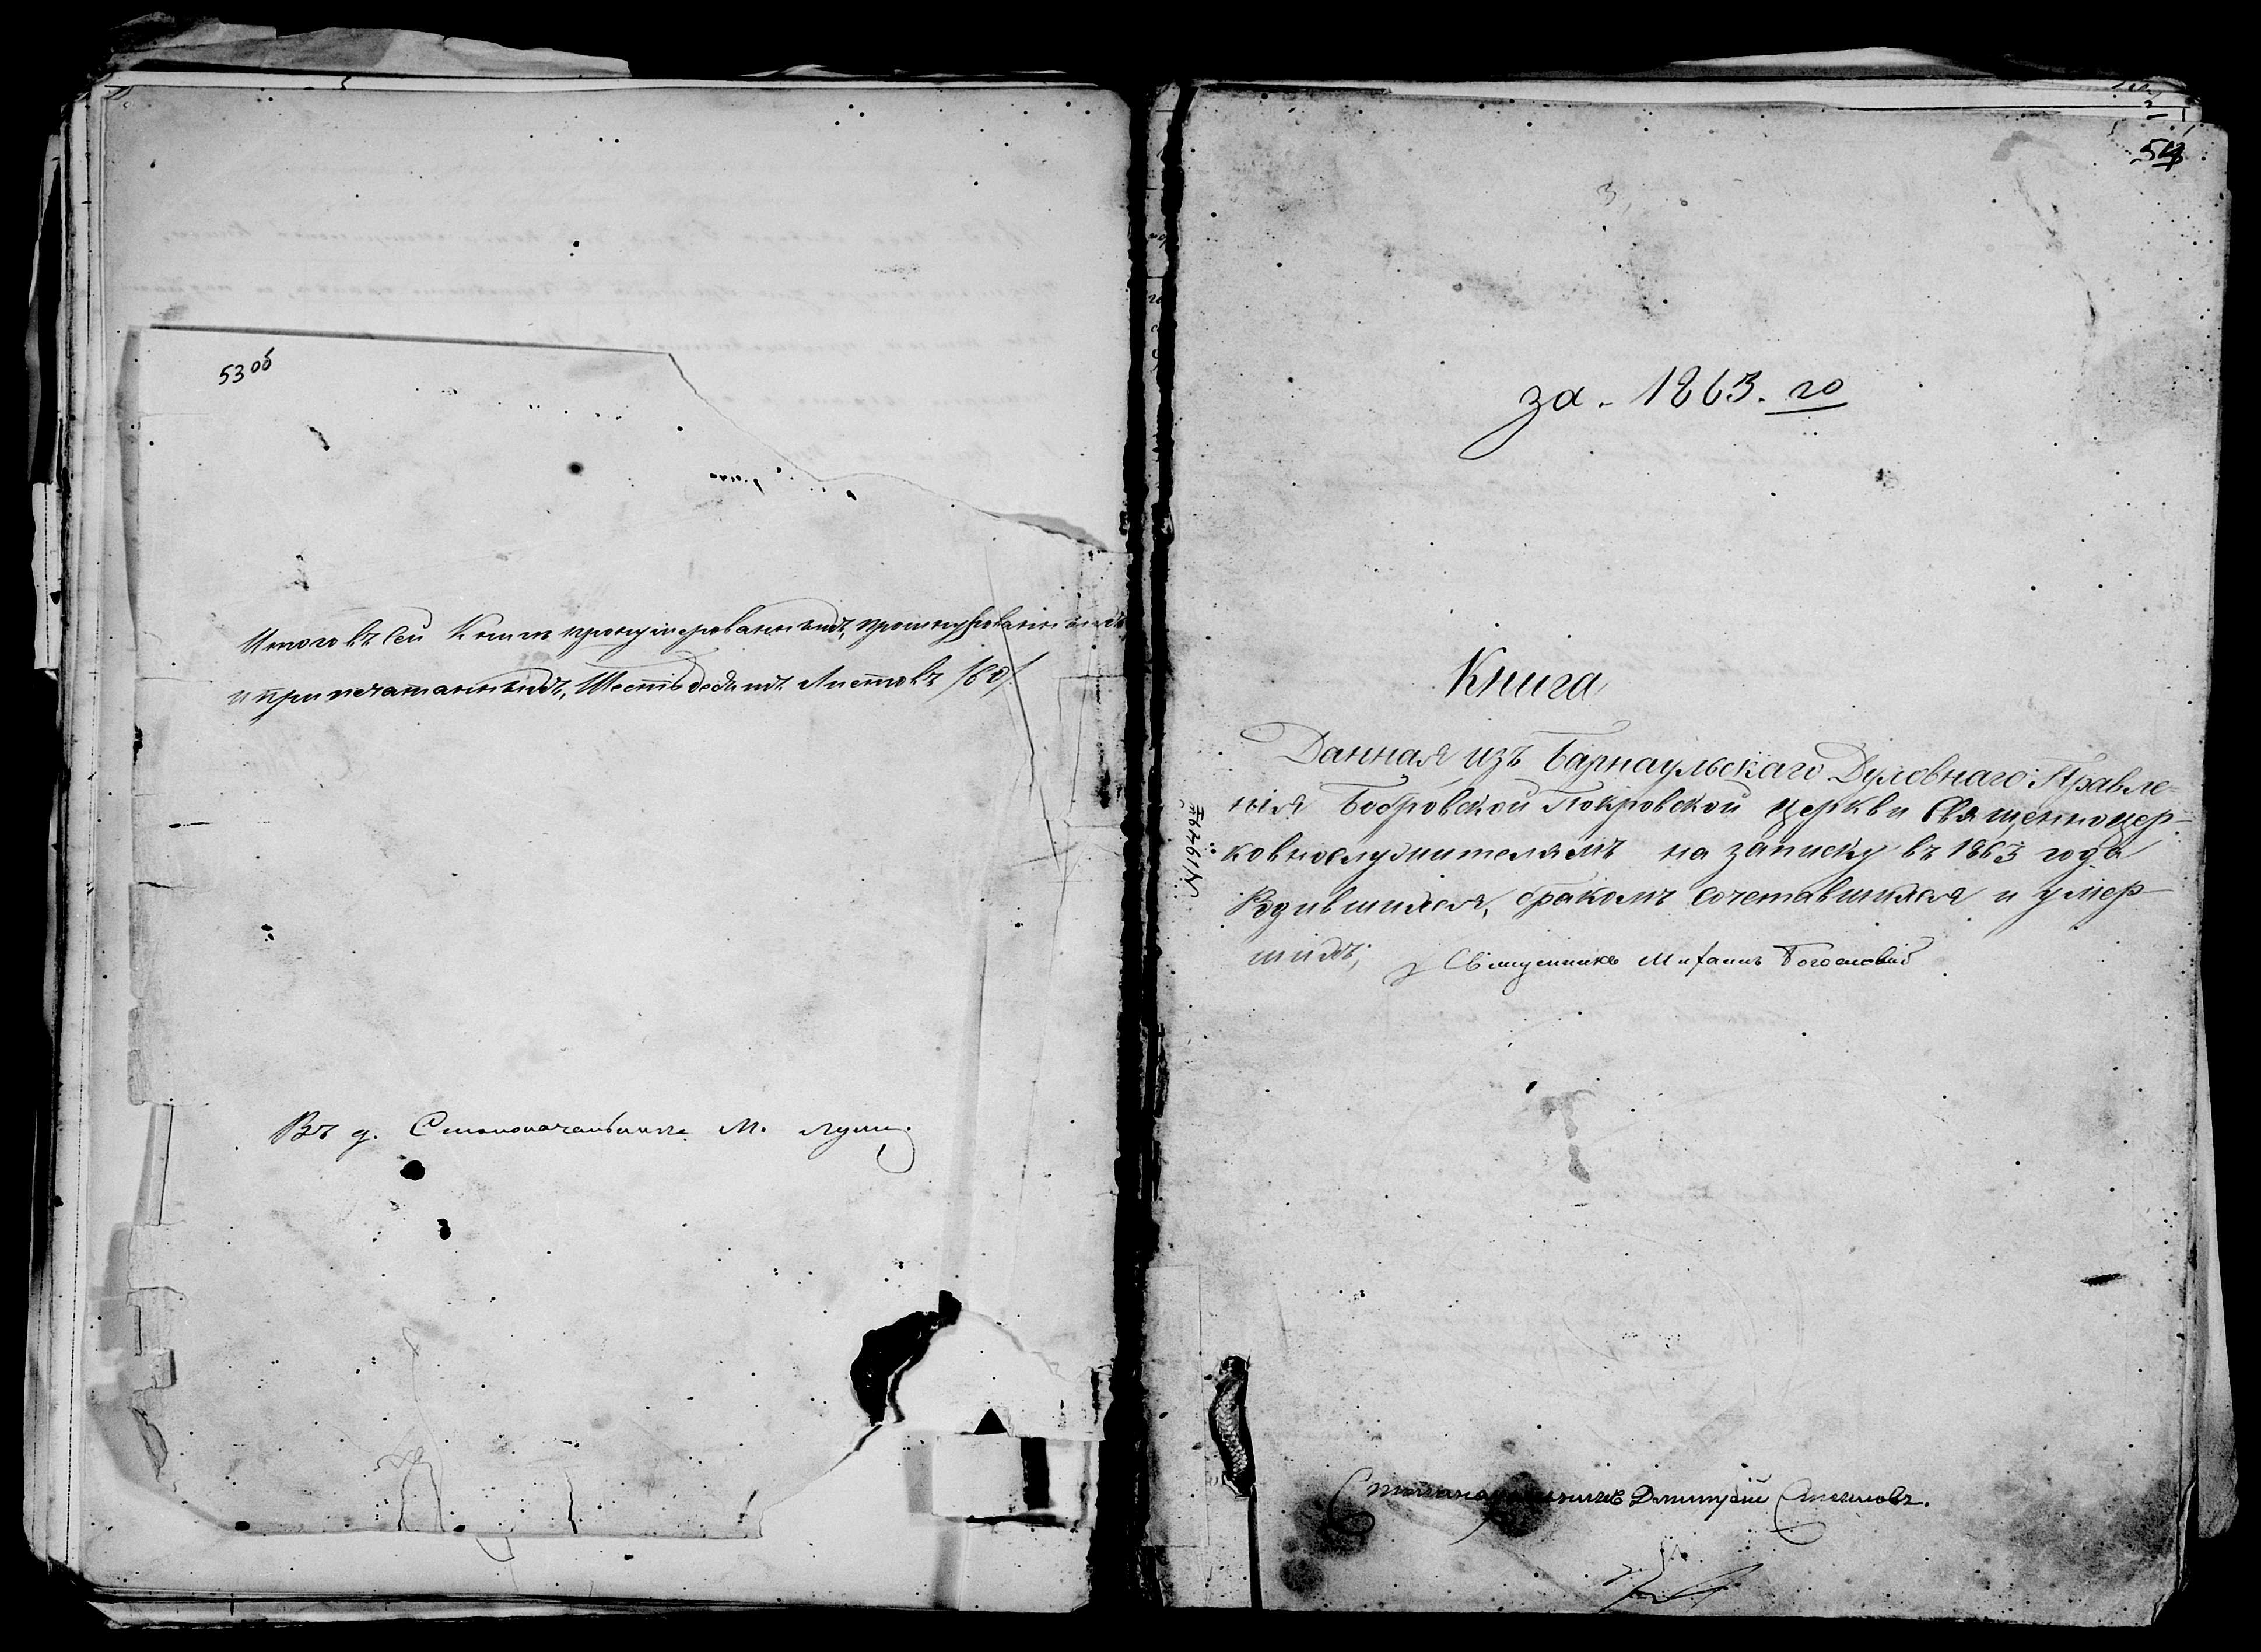 53 об
Итого въ сей Книгѣ пронумерованныхъ, прошнурованныхъ
и припечатанныхъ, Шестьдесятъ Листовъ /60/.
Въ д. Столоначальника М.
54
за - 1863. го
Книга
Данная изъ Барнаульскаго Духовнаго Правле-
нія Бобровской Покровской церкви Священноцер-
ковнослужителямъ на записку въ 1863 года
Родившихся, бракомъ сочетавшихся и умер-
шихъ;
Священникъ Михаилъ Богословскій
Столоначальникъ Димитрій